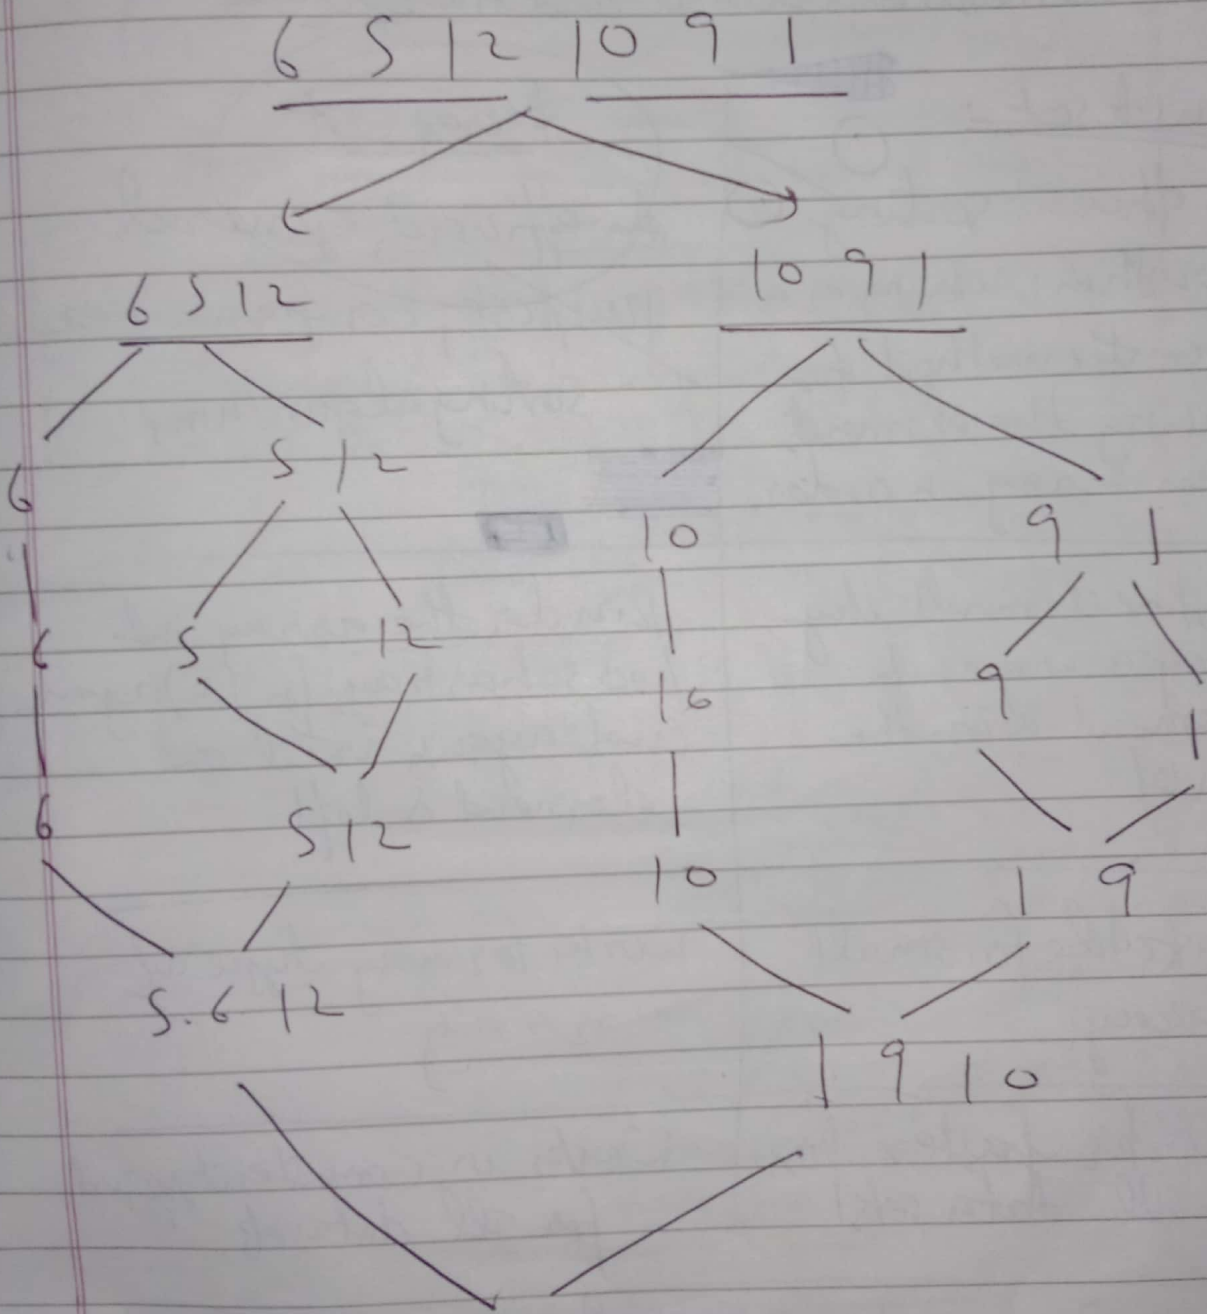 6 5 12 10 9 1
6 5 12 10 9 1
6 5 12 10 9 1
6 5 12 10 9 1
6 5 12 10 1 9
5 6 12 1 9 10